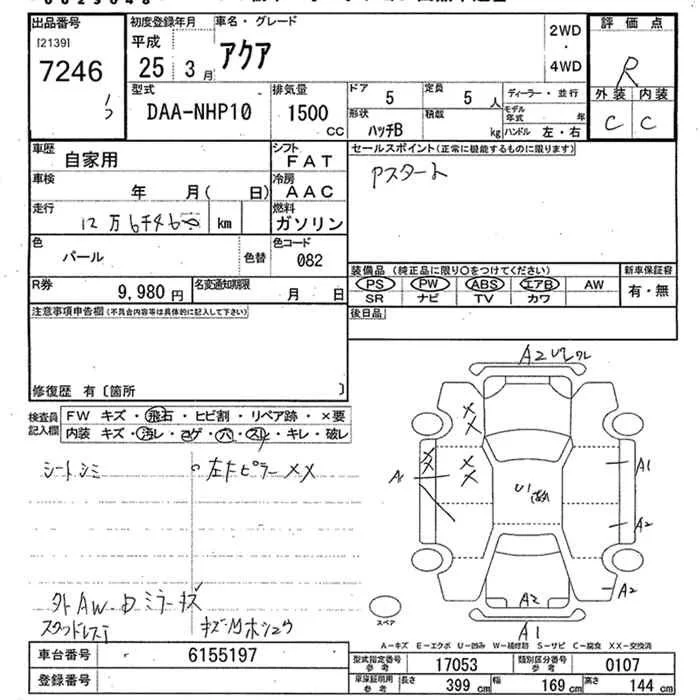 出品番号 初度登録年月 車名・グレード 評価点
[2139] 平成 アクア 2WD
7246 25 3 月 ・ 4WD R
型式 排気量 ドア 定員 ディーラー・並行 外装 内装
DAA-NHP10 1500 CC 5 5 人 モデル年式 年 C C
形状 ハッチB 積載 kg ハンドル 左・右
車歴 自家用 シフト FAT セールスポイント(正常に機能するものに限ります)
車検 年 月( 日) 冷房 AAC アスタート
走行 12万6千4 km 燃料 ガソリン
色 パール 色替 色コード 082
装備品 (純正品に限り〇をつけてください) 新車保証書
PS PW ABS エアB AW 有・無
SR ナビ TV カワ
R券 9,980 円 名変通知期限 月 日
後日品
注意事項申告欄(不具合内容等は具体的に記入して下さい)
修復歴 有〔箇所 〕
検査員記入欄 FW キズ・飛石・ヒビ割・リペア跡・×要
内装 キズ・汚レ・コゲ・穴・スレ・キレ・破レ
シートシミ 左右ピラー××
外AW・Dミラーキズ
A2
××
××
A1
U1
A1
A2
A2
A2
A1
スペア
A-キズ E-エクボ U-凹み W-補修跡 S-サビ C-腐食 XX-交換済
車台番号 6155197
登録番号
型式指定番号 参考 17053 類別区分番号 参考 0107
車庫証明用 参考 長さ 399 cm 幅 169 cm 高さ 144 cm